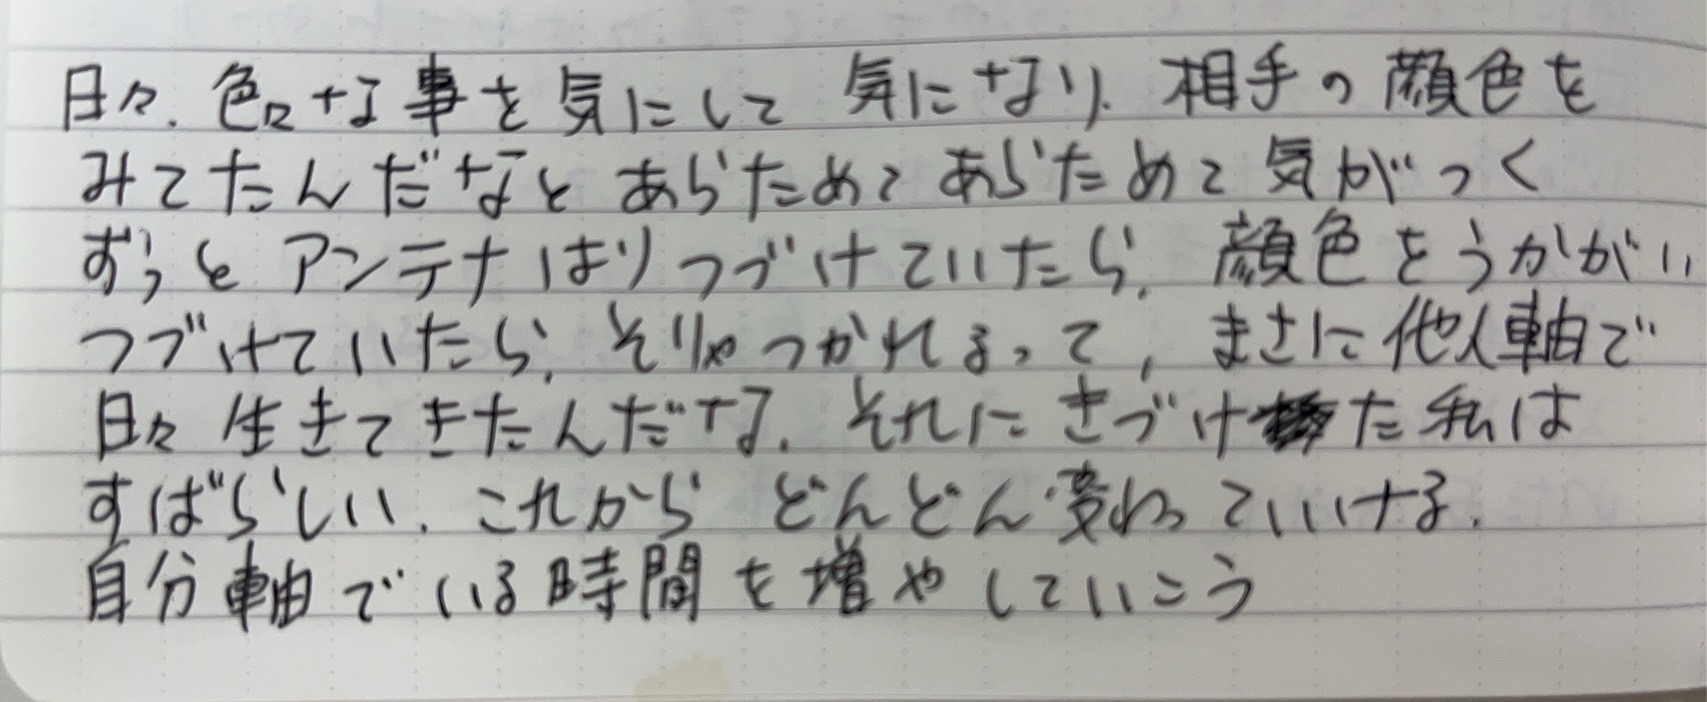 日々、色々な事を気にして 気になり、相手の顔色を
みてたんだなと あらためて あらためて 気がつく
ずっと アンテナはりつづけていたら、顔色をうかがい
つづけていたら、そりゃつかれるって、まさに他人軸で
日々 生きてきたんだな、それに きづけた私は
すばらしい、これから どんどん変わっていける、
自分軸でいる時間を増やしていこう